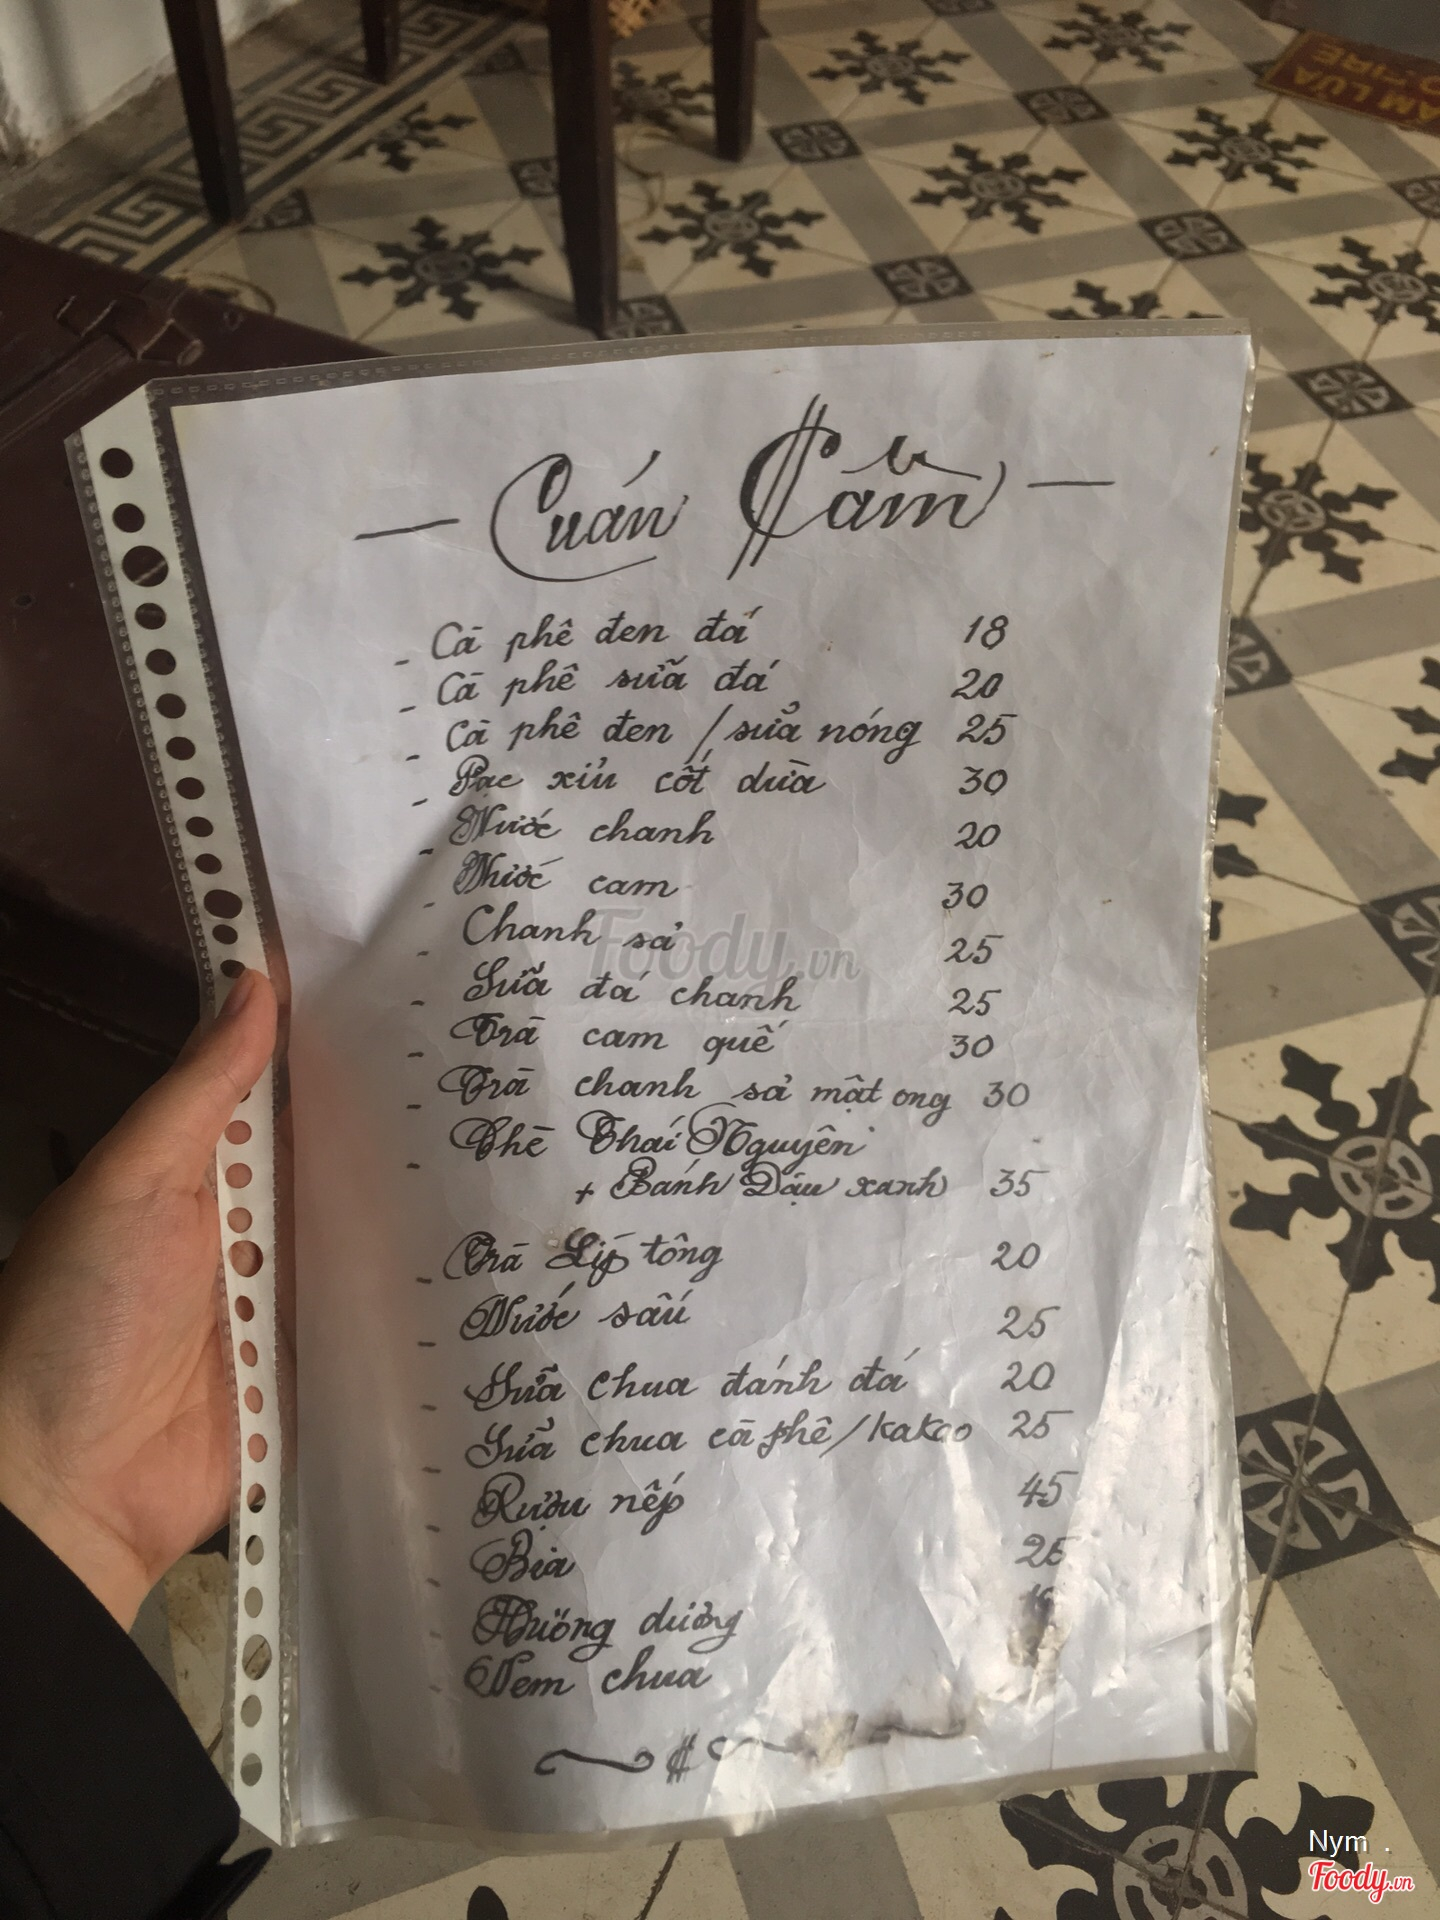 ẤM LỬA
O FIRE
— Cuán Cầm —
- Cà phê đen đá 18
- Cà phê sữa đá 20
- Cà phê đen / sữa nóng 25
- Pạc xỉu cốt dừa 30
- Nước chanh 20
- Nước cam 30
- Chanh sả 25
- Sữa đá chanh 25
- Trà cam quế 30
- Trà chanh sả mật ong 30
- Chè Thái Nguyên
+ Bánh Đậu xanh 35
- Trà Líp tông 20
- Nước sấu 25
- Sữa chua đánh đá 20
- Sữa chua cà phê / kakao 25
- Rượu nếp 45
- Bia 25
- Hướng dương
- Nem chua
Foody.vn
Nym .
Foody.vn